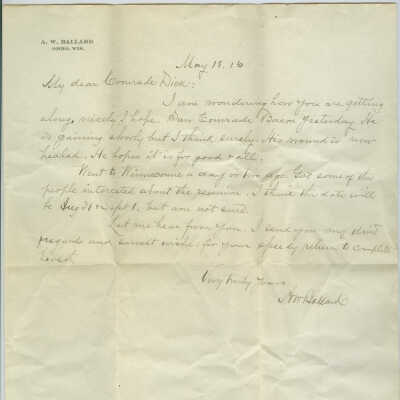 A. W. BALLARD
OMRO, WIS.
May 18, 16
My dear Comrade Dick:
I am wondering how you are getting
along, nicely I hope. Saw Comrade Bacon yesterday. He
is gaining slowly but I think surely. His wound is now
healed. He hopes it is for good & all.
Went to Winneconne a day or two ago. Got some of the
people interested about the reunion. I think the date will
be Aug 31 & Sept 1, but am not sure.
Let me hear from you. I send you my
regards and sincerest wishes for your speedy return to complete
Very truly Yours
A W Ballard